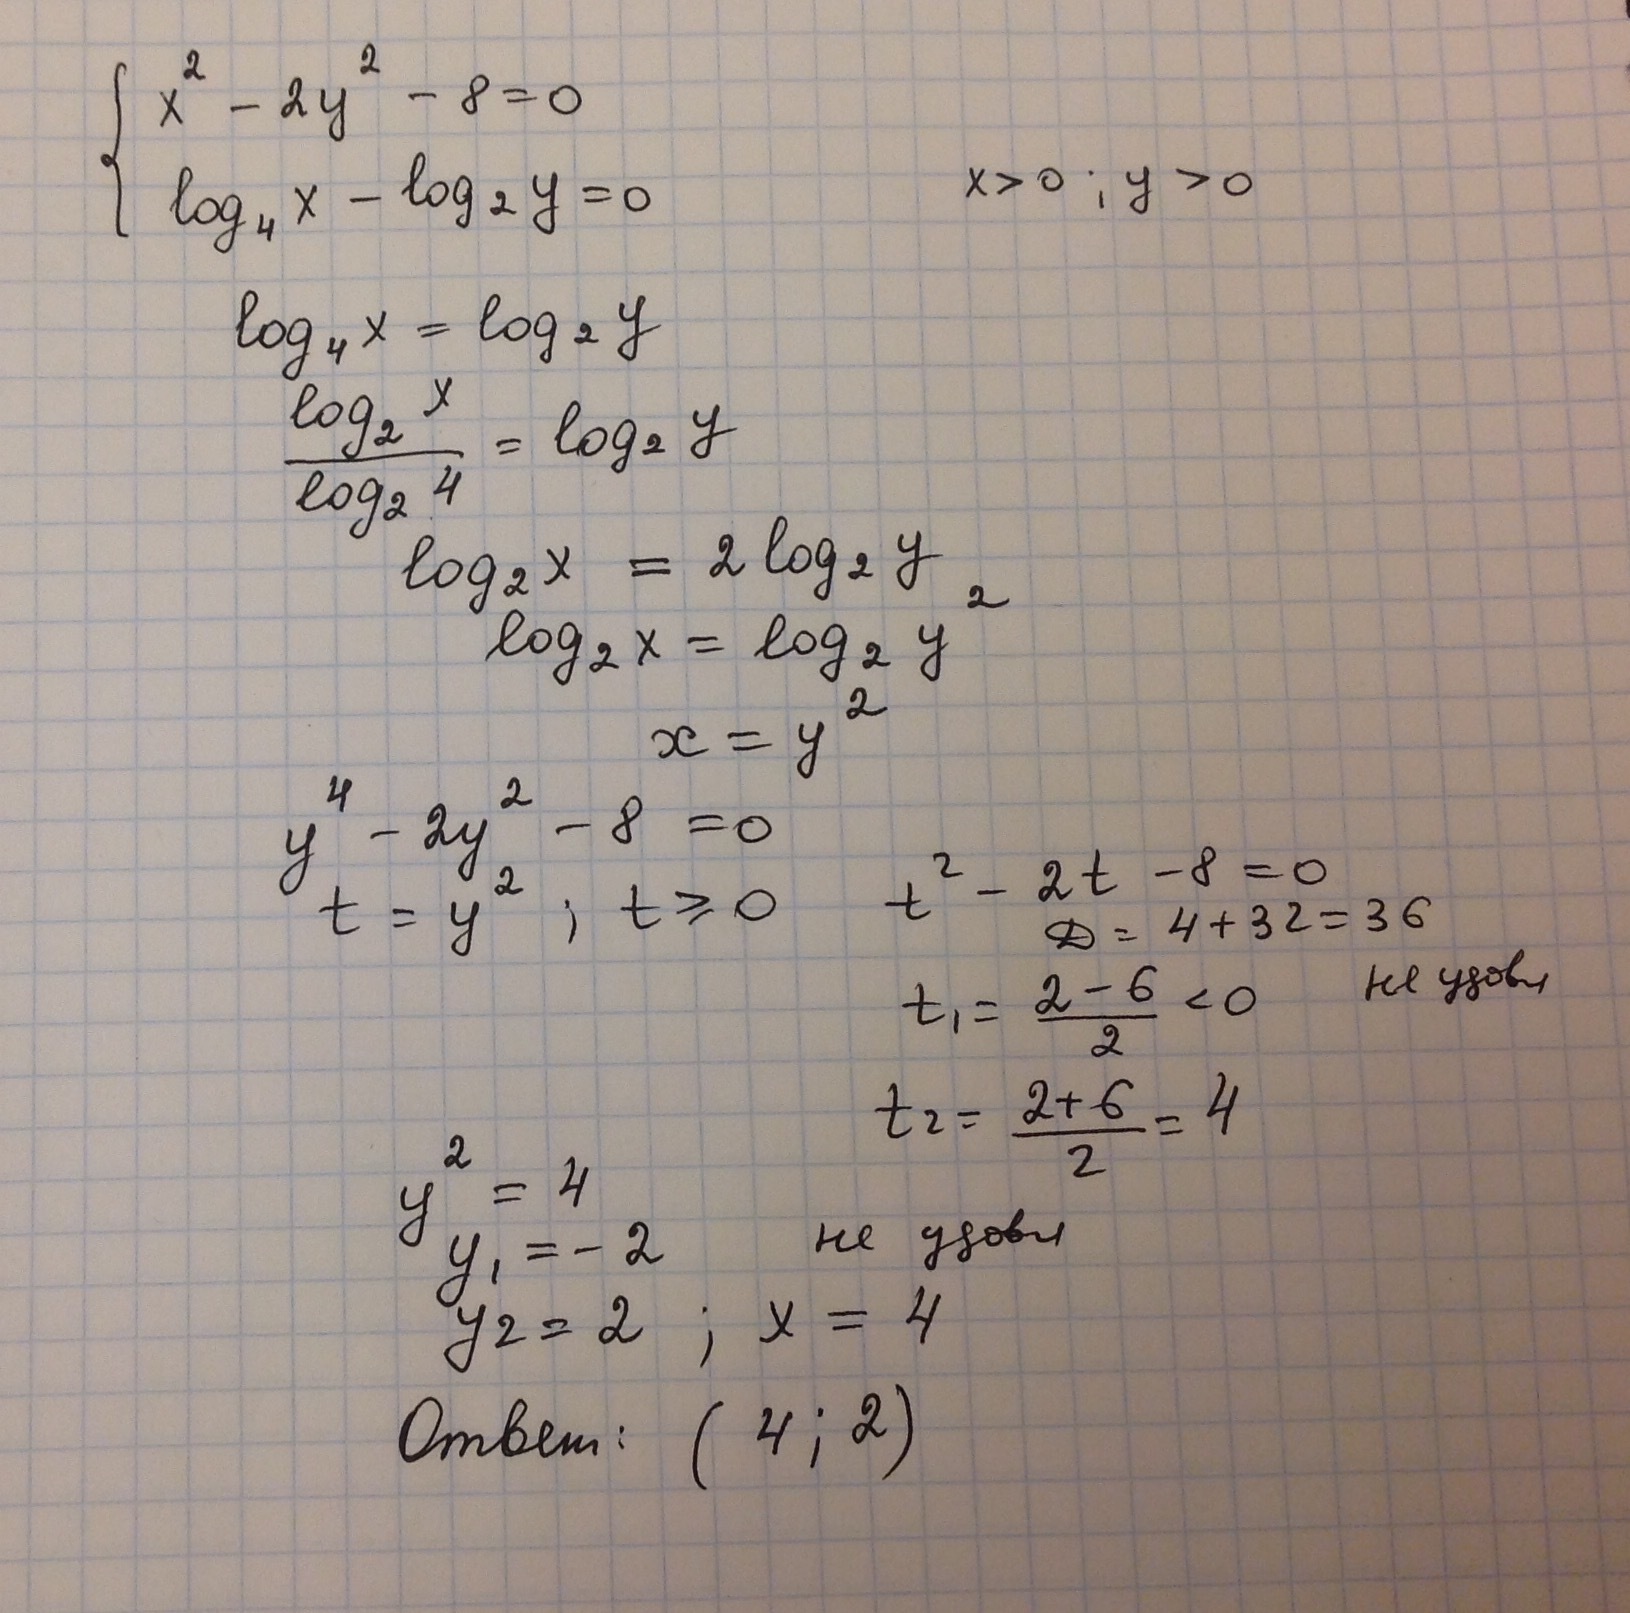 { x² - 2y² - 8 = 0
log₄ x - log₂ y = 0 x > 0 ; y > 0
log₄ x = log₂ y
log₂ x / log₂ 4 = log₂ y
log₂ x = 2 log₂ y
log₂ x = log₂ y²
x = y²
y⁴ - 2y² - 8 = 0
t = y² ; t ≥ 0
t² - 2t - 8 = 0
D = 4 + 32 = 36
t₁ = (2 - 6)/2 < 0 не удовл
t₂ = (2 + 6)/2 = 4
y² = 4
y₁ = - 2 не удовл
y₂ = 2 ; x = 4
Ответ: ( 4 ; 2 )